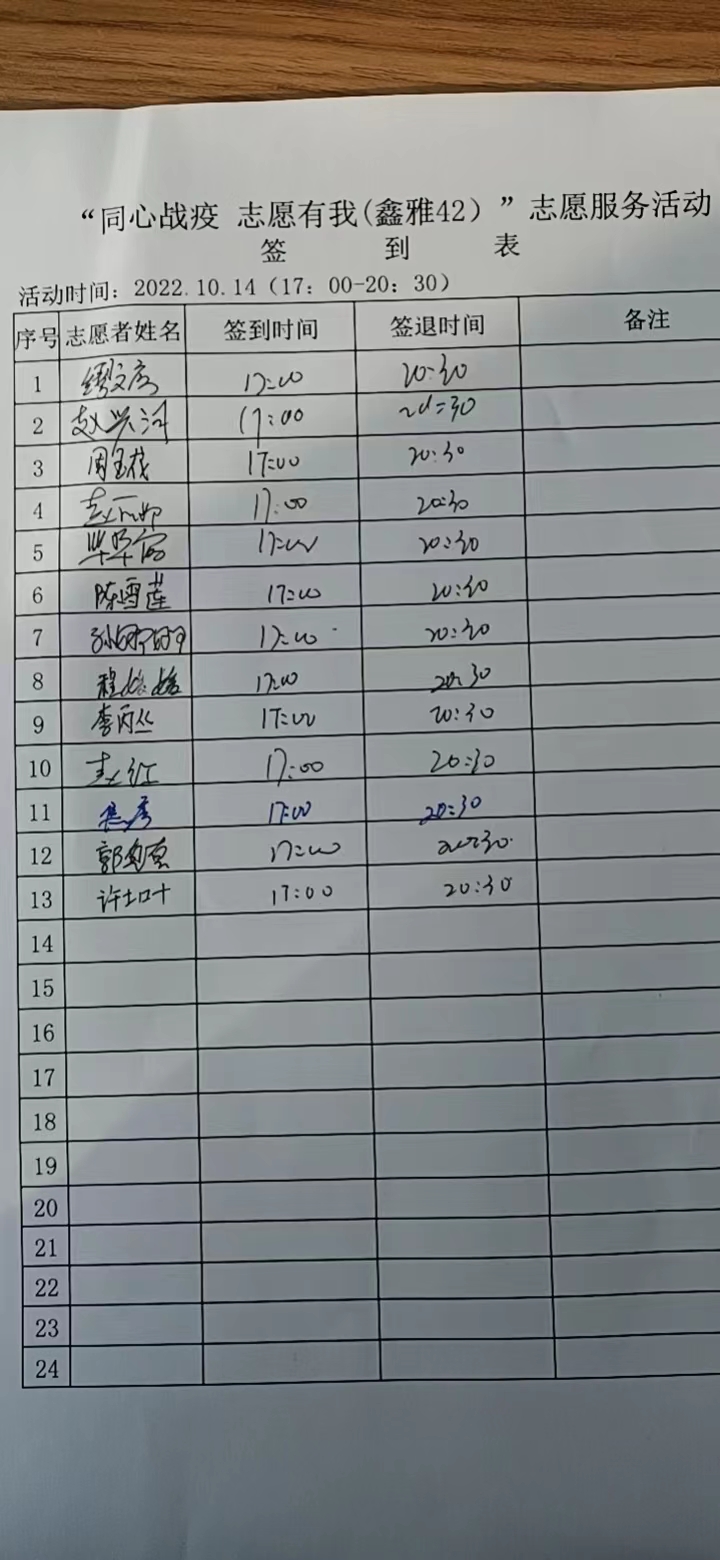 “同心战疫 志愿有我(鑫雅42)”志愿服务活动
签 到 表
活动时间: 2022.10.14（17: 00-20: 30）
序号 志愿者姓名 签到时间 签退时间 备注
1 17:00 20:30
2 赵兴河 17:00 20:30
3 周玉茂 17:00 20:30
4 17:00 20:30
5 17:00 20:30
6 陈雪莲 17:00 20:30
7 孙婷婷 17:00 20:30
8 程媛媛 17:00 20:30
9 李丙丛 17:00 20:30
10 赵红 17:00 20:30
11 17:00 20:30
12 17:00 20:30
13 17:00 20:30
14
15
16
17
18
19
20
21
22
23
24